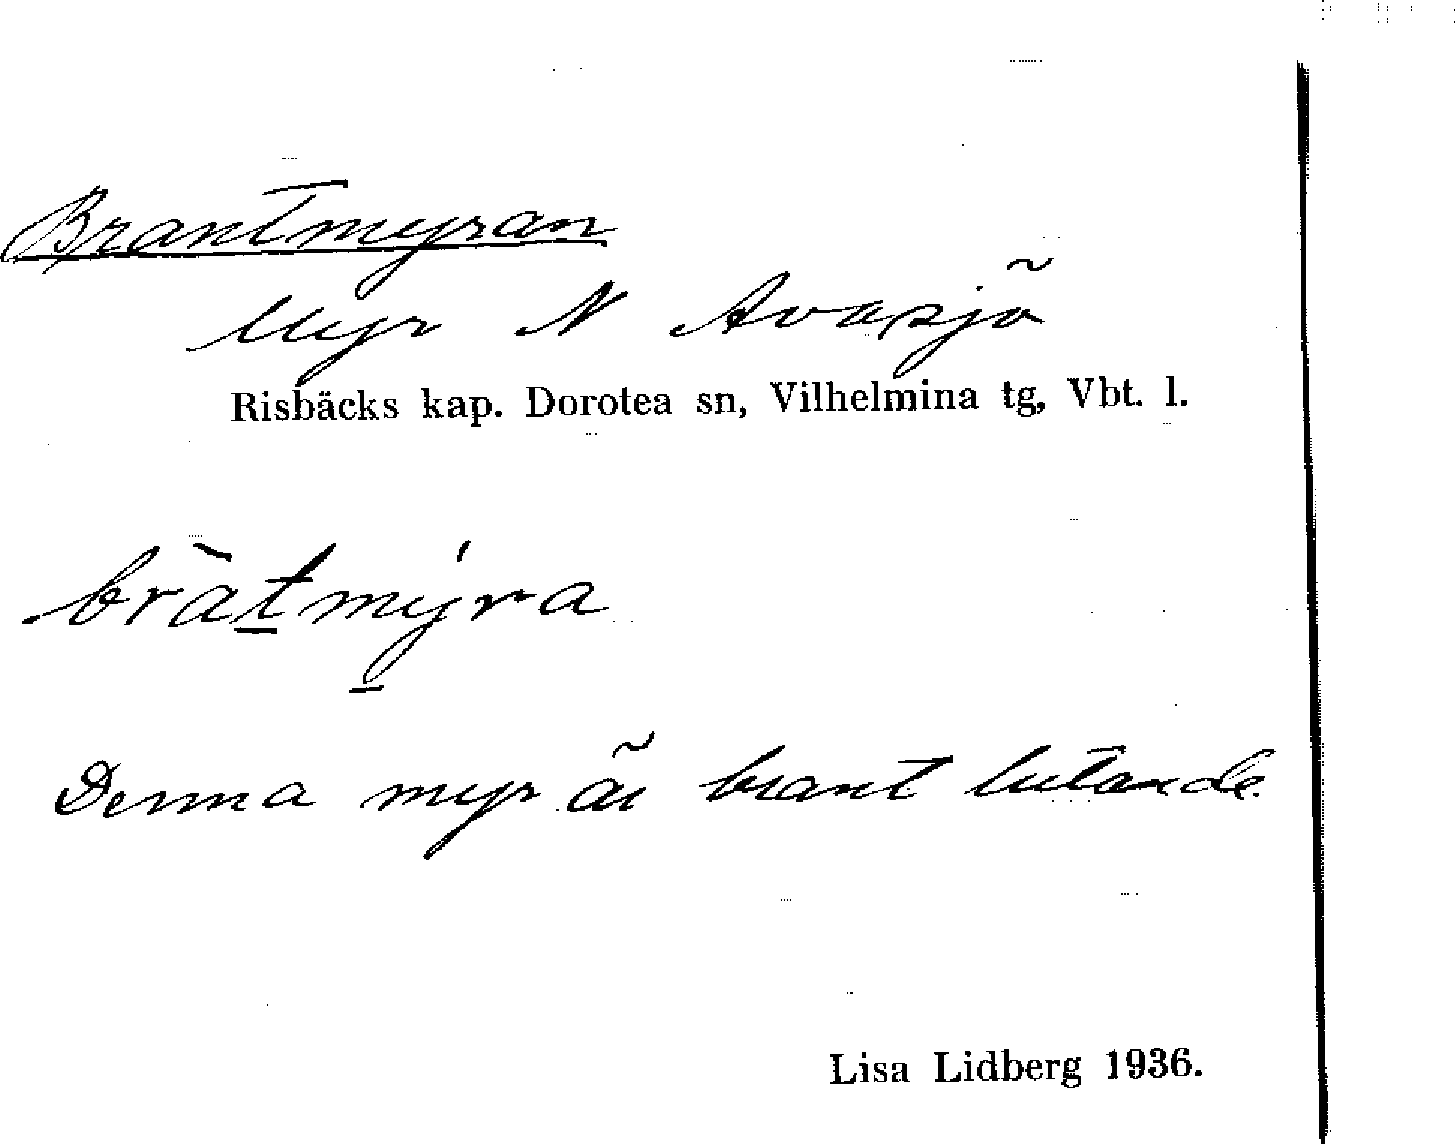 Brantmyran
Myr N Avasjö
Risbäcks kap. Dorotea sn, Vilhelmina tg, Vbt. l.
bràt̲mý̲ra
Denna myr är brant lutande.
Lisa Lidberg 1936.